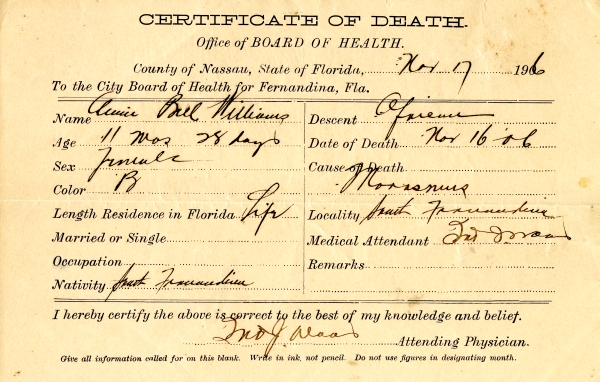 CERTIFICATE OF DEATH.
Office of BOARD OF HEALTH.
County of Nassau, State of Florida, Nov 17 1906
To the City Board of Health for Fernandina, Fla.
Name Annie Bell Williams
Age 11 mos 28 days
Sex Female
Color B
Length Residence in Florida Life
Married or Single
Occupation
Nativity Fernandina
Descent African
Date of Death Nov 16 06
Cause of Death
Marasmus
Locality Fernandina
Medical Attendant
Remarks
I hereby certify the above is correct to the best of my knowledge and belief.
Attending Physician.
Give all information called for on this blank. Write in ink, not pencil. Do not use figures in designating month.